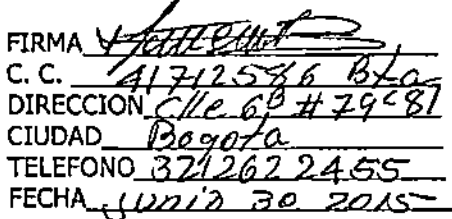 FIRMA
C. C. 41712586 Bta
DIRECCION Clle 6B # 79C 81
CIUDAD Bogota
TELEFONO 3212622455
FECHA junio 30 2015